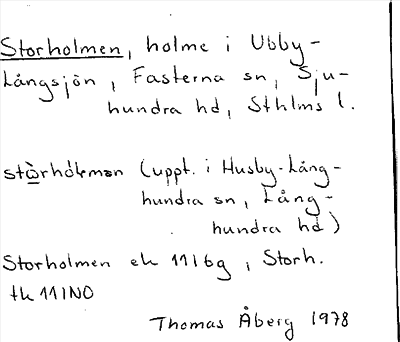 Storholmen, holme i Ubby-
Långsjön, Fasterna sn, Sju-
hundra hd, Sthlms l.
stòrhólmən (uppt. i Husby-Lång-
hundra sn, Lång-
hundra hd)
Storholmen ek 11I6g, Storh.
tk 11INO
Thomas Åberg 1978